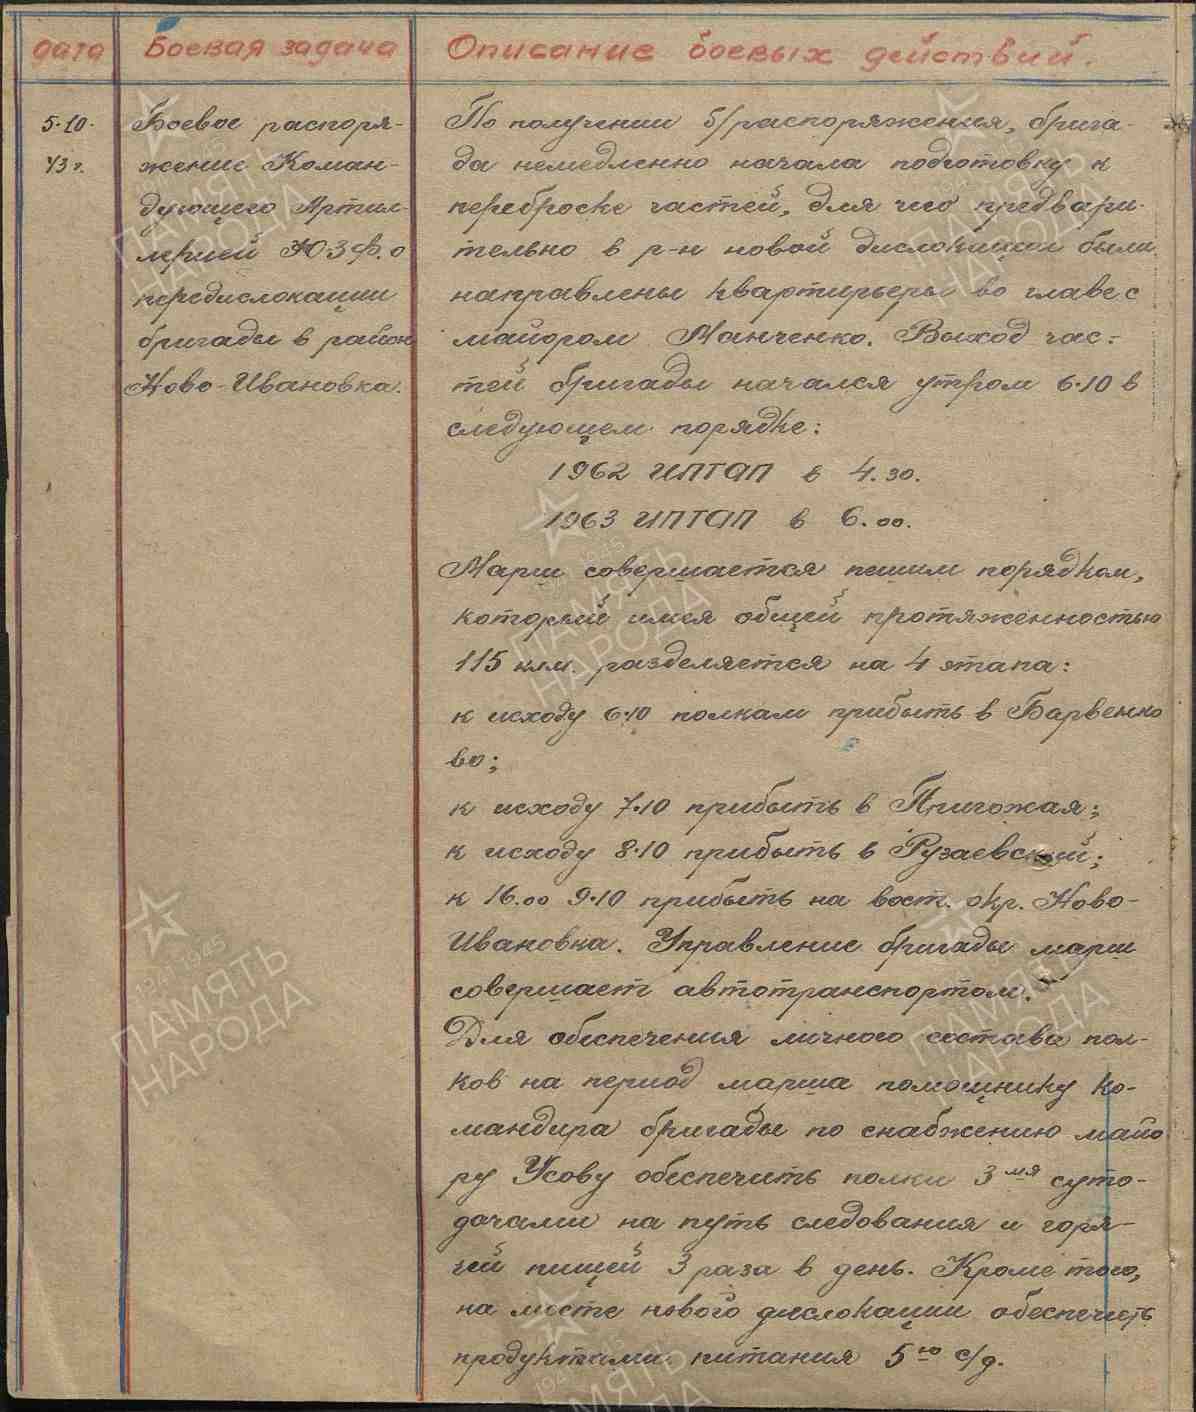 дата
Боевая задача
Описание боевых действий.
5.10.
43 г.
Боевое распоря-
жение Коман-
дующего Артил-
лерией ЮЗФ. о
передислокации
бригады в район
Ново-Ивановка.
По получении б/распоряжения, брига-
да немедленно начала подготовку к
переброске частей, для чего предвари-
тельно в р-н новой дислокации были
направлены квартирьеры во главе с
майором Манченко. Выход час-
тей бригады начался утром 6.10 в
следующем порядке:
1962 ИПТАП в 4.30.
1963 ИПТАП в 6.00.
Марш совершается пешим порядком,
который имея общей протяженностью
115 клм. разделяется на 4 этапа:
к исходу 6.10 полкам прибыть в Барвенко
во;
к исходу 7.10 прибыть в Пригожая;
к исходу 8.10 прибыть в Рузаевский;
к 16.00 9.10 прибыть на вост. окр. Ново-
Ивановка. Управление бригады марш
совершает автотранспортом.
Для обеспечения личного состава пол-
ков на период марша помощнику ко-
мандира бригады по снабжению майо
ру Усову обеспечить полки 3мя суто-
дачами на путь следования и горя-
чей пищей 3 раза в день. Кроме того,
на месте нового дислокации обеспечить
продуктами питания 5ю с/д.
ПАМЯТЬ
НАРОДА
1941-1945
ПАМЯТЬ
НАРОДА
1941-1945
ПАМЯТЬ
НАРОДА
1941-1945
ПАМЯТЬ
НАРОДА
1941-1945
ПАМЯТЬ
НАРОДА
1941-1945
ПАМЯТЬ
НАРОДА